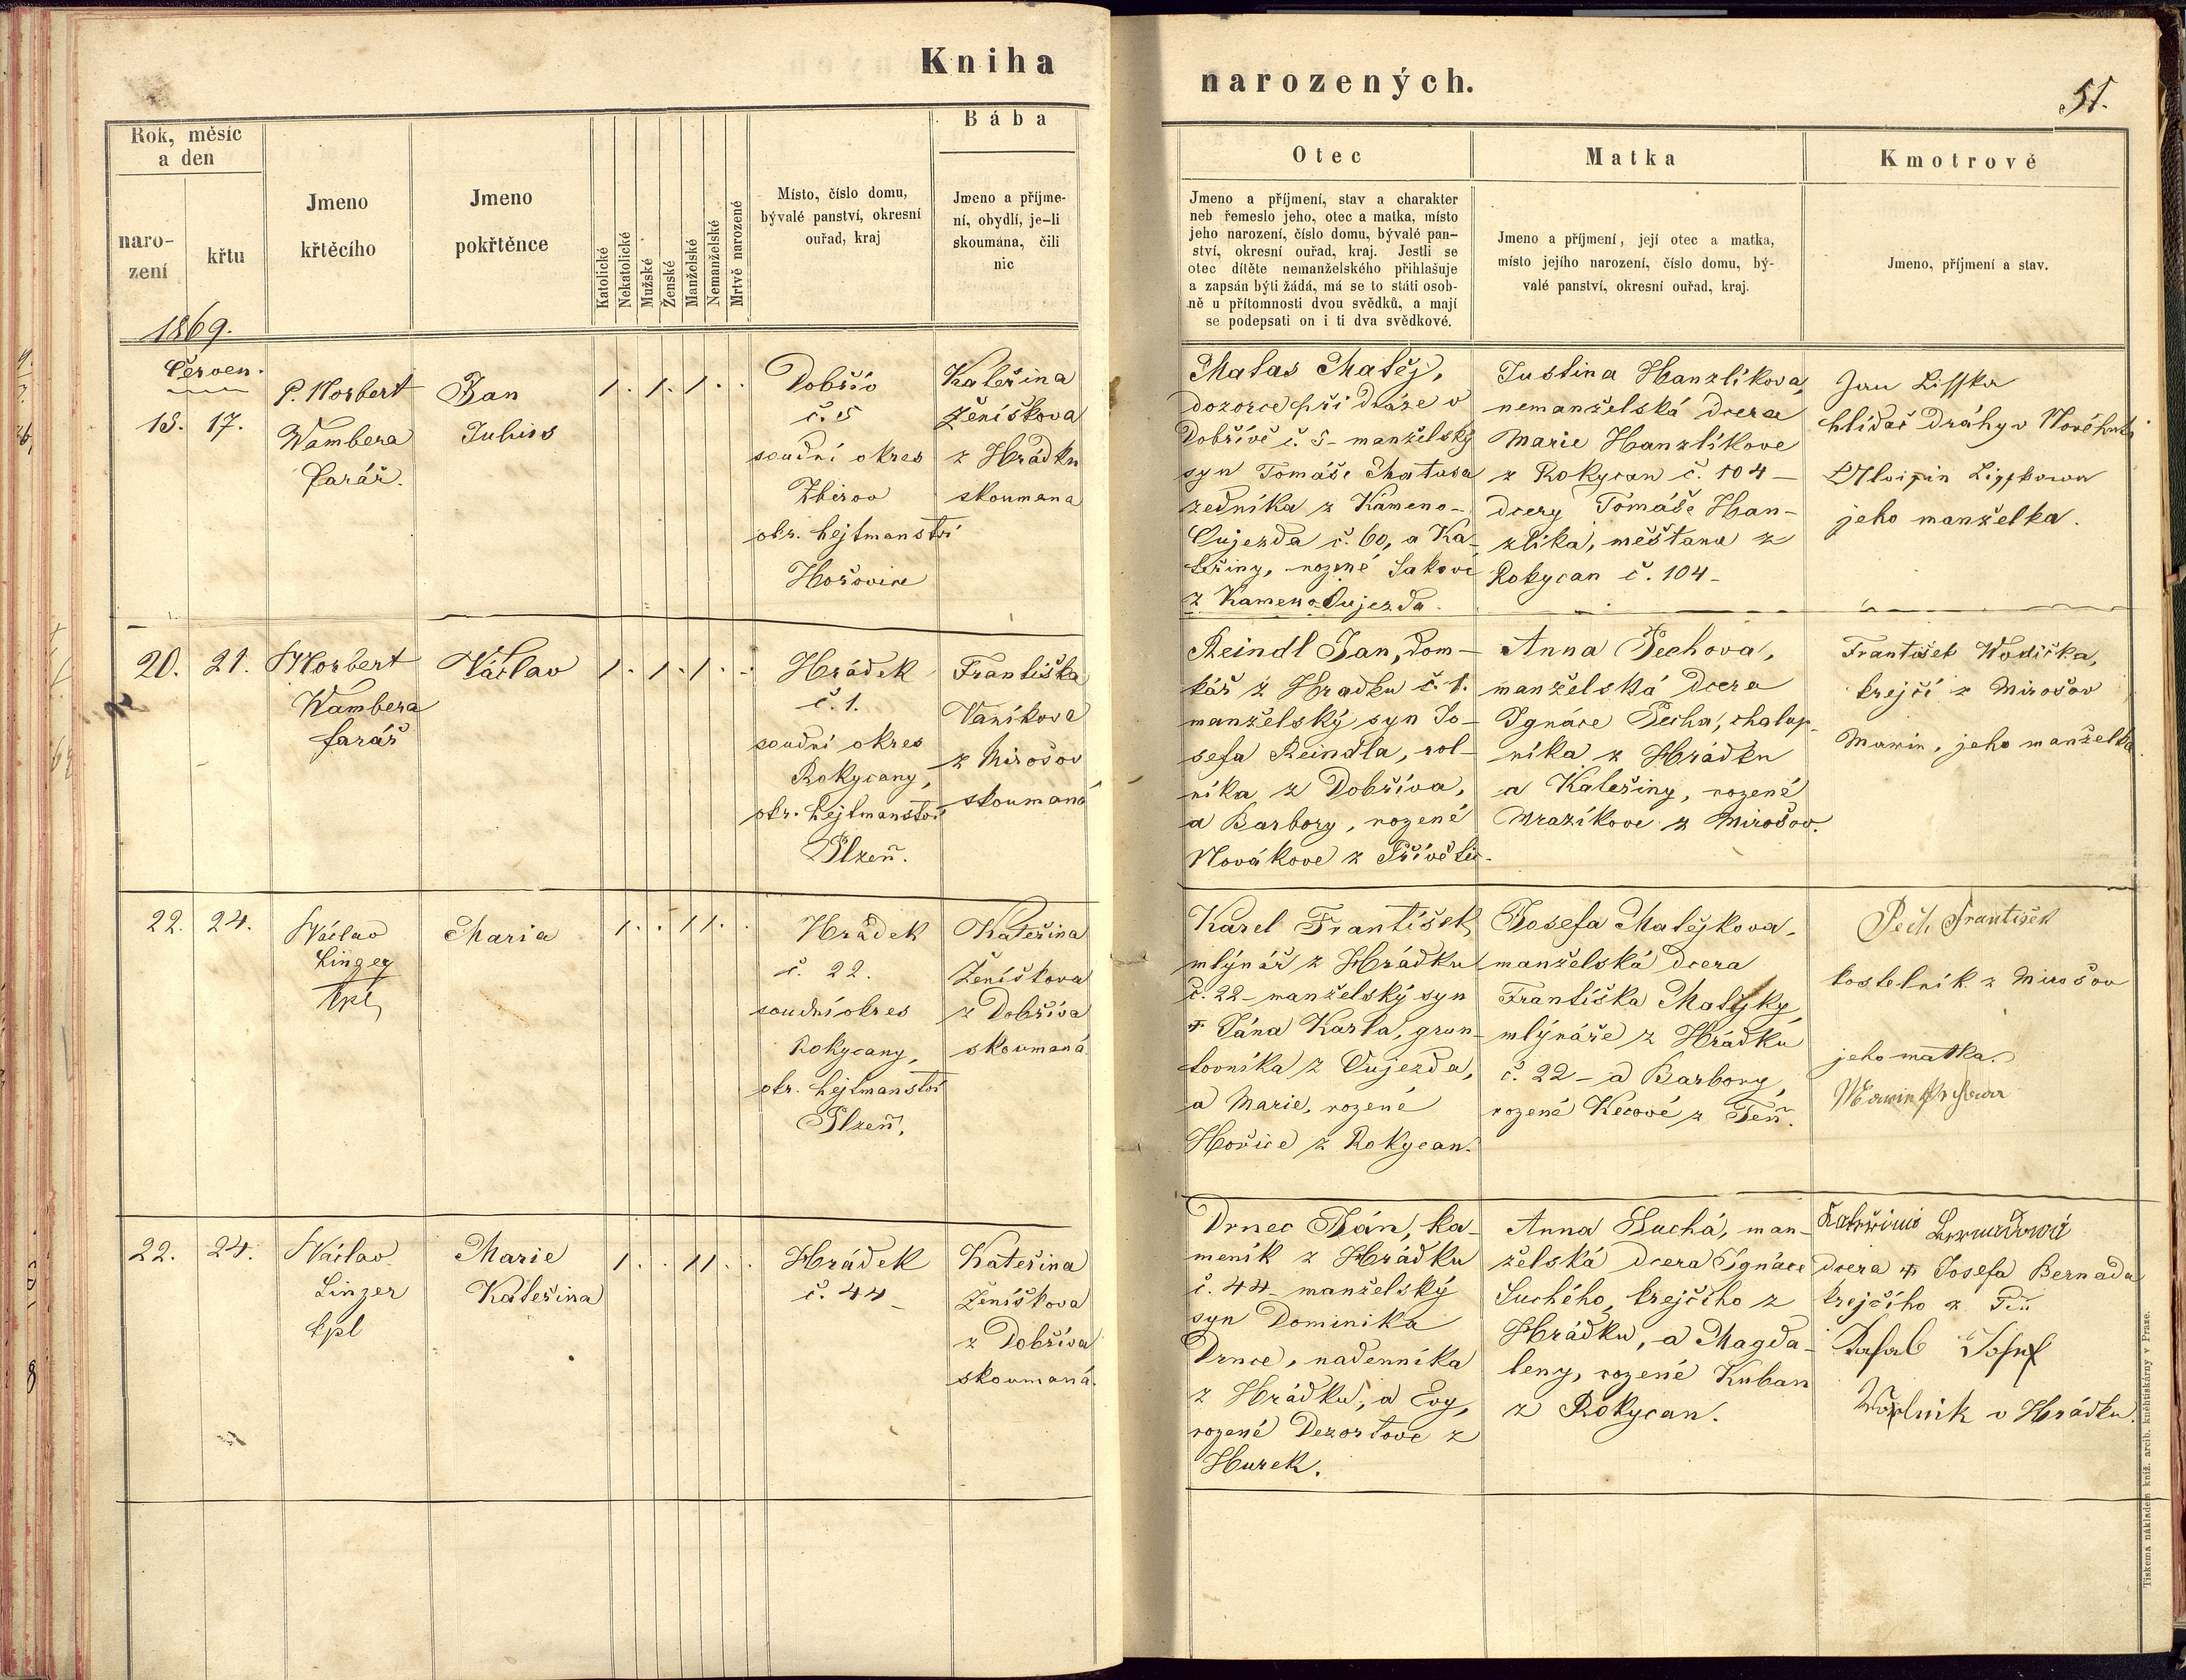 Kniha
narozených.
51.
Rok, měsíc
a den
naro-
zení
křtu
Jmeno
křtěcího
Jmeno
pokřtěnce
Katolické
Nekatolické
Mužské
Ženské
Manželské
Nemanželské
Mrtvě narozené
Místo, číslo domu,
bývalé panství, okresní
ouřad, kraj
Bába
Jmeno a příjme-
ní, obydlí, je-li
skoumána, čili
nic
Otec
Jmeno a příjmení, stav a charakter
neb řemeslo jeho, otec a matka, místo
jeho narození, číslo domu, bývalé pan-
ství, okresní ouřad, kraj. Jestli se
otec dítěte nemanželského přihlašuje
a zapsán býti žádá, má se to státi osob-
ně u přítomnosti dvou svědků, a mají
se podepsati on i ti dva svědkové.
Matka
Jmeno a příjmení, její otec a matka,
místo jejího narození, číslo domu, bý-
valé panství, okresní ouřad, kraj.
Kmotrové
Jmeno, příjmení a stav.
1869.
Červen.
15. 17.
P. Norbert
Wambera
farář.
Jan
Julius
1. 1. 1. .
Dobřív
č. 5
soudní okres
Zbirov
okr. hejtmanství
Hořovice
Kateřina
Ženíškova
z Hrádku
skoumana
Matas Matěj,
dozorce při dráze v
Dobřívě č. 5 - manželský
syn Tomáše Matasa
zedníka z Kameno-
Oujezda č. 60, a Ka-
teřiny, rozené Sakové
z Kameno Oujezda.
Justina Hanzlíkova,
nemanželská dcera
Marie Hanzlíkove
z Rokycan č. 104 -
dcery Tomáše Han-
zlíka, měštana z
Rokycan č. 104 -
Jan Lisska
hlídač dráhy v Novéhuti
Lisskowa
jeho manželka.
20. 21.
Norbert
Wambera
farář
Václav
1. 1. 1. .
Hrádek
č. 1.
soudní okres
Rokycany,
okr. hejtmanství
Plzeň.
Františka
Vaníkova
z Mirošov
skoumaná
Reindl Jan, dom-
kář z Hradku č. 1.
manželský syn Jo-
sefa Reindla, rol-
níka z Dobříva,
a Barbory, rozené
Novákove z Přívětic.
Anna Pechova,
manželská dcera
Ignáce Pecha, chalup-
níka z Hrádku
a Kateřiny, rozené
Mrazíkove z Mirošov.
František Wodička,
krejčí z Mirošov
Marie, jeho manželka.
22. 24.
Václav
Linzer
kpl
Maria
1. . 1 1. .
Hrádek
č. 22.
soudní okres
Rokycany,
okr. hejtmanství
Plzeň.
Kateřina
Ženíškova
z Dobříva
skoumaná.
Karel František,
mlynář z Hrádku
č. 22 - manželský syn
† Jána Karla, grun-
tovníka z Oujezda,
a Marie, rozené
Hořice z Rokycan.
Josefa Matějkova,
manželská dcera
Františka Matějky,
mlýnáře z Hrádku
č. 22 - a Barbory,
rozené Kecové z Teň.
Pech František
kostelník z Mirošov
jeho matka.
22. 24.
Václav
Linzer
kpl
Marie
Kateřina
1. . 1 1. .
Hrádek
č. 44 -
Kateřina
Ženíškova
z Dobříva
skoumaná.
Drnec Ján, ka-
meník z Hrádku
č. 44 - manželský
syn Dominika
Drnce, nadenníka
z Hrádku, a Evy,
rozené Dezortove z
Hurek.
Anna Suchá, man-
želská dcera Ignáce
Suchého, krejčího z
Hrádku, a Magda-
leny, rozené Kuban
z Rokycan.
dcera † Josefa Bernada
krejčího z Teň
Josef
v Hrádku.
Tiskem a nákladem kníž. arcib. kněhtiskárny v Praze.